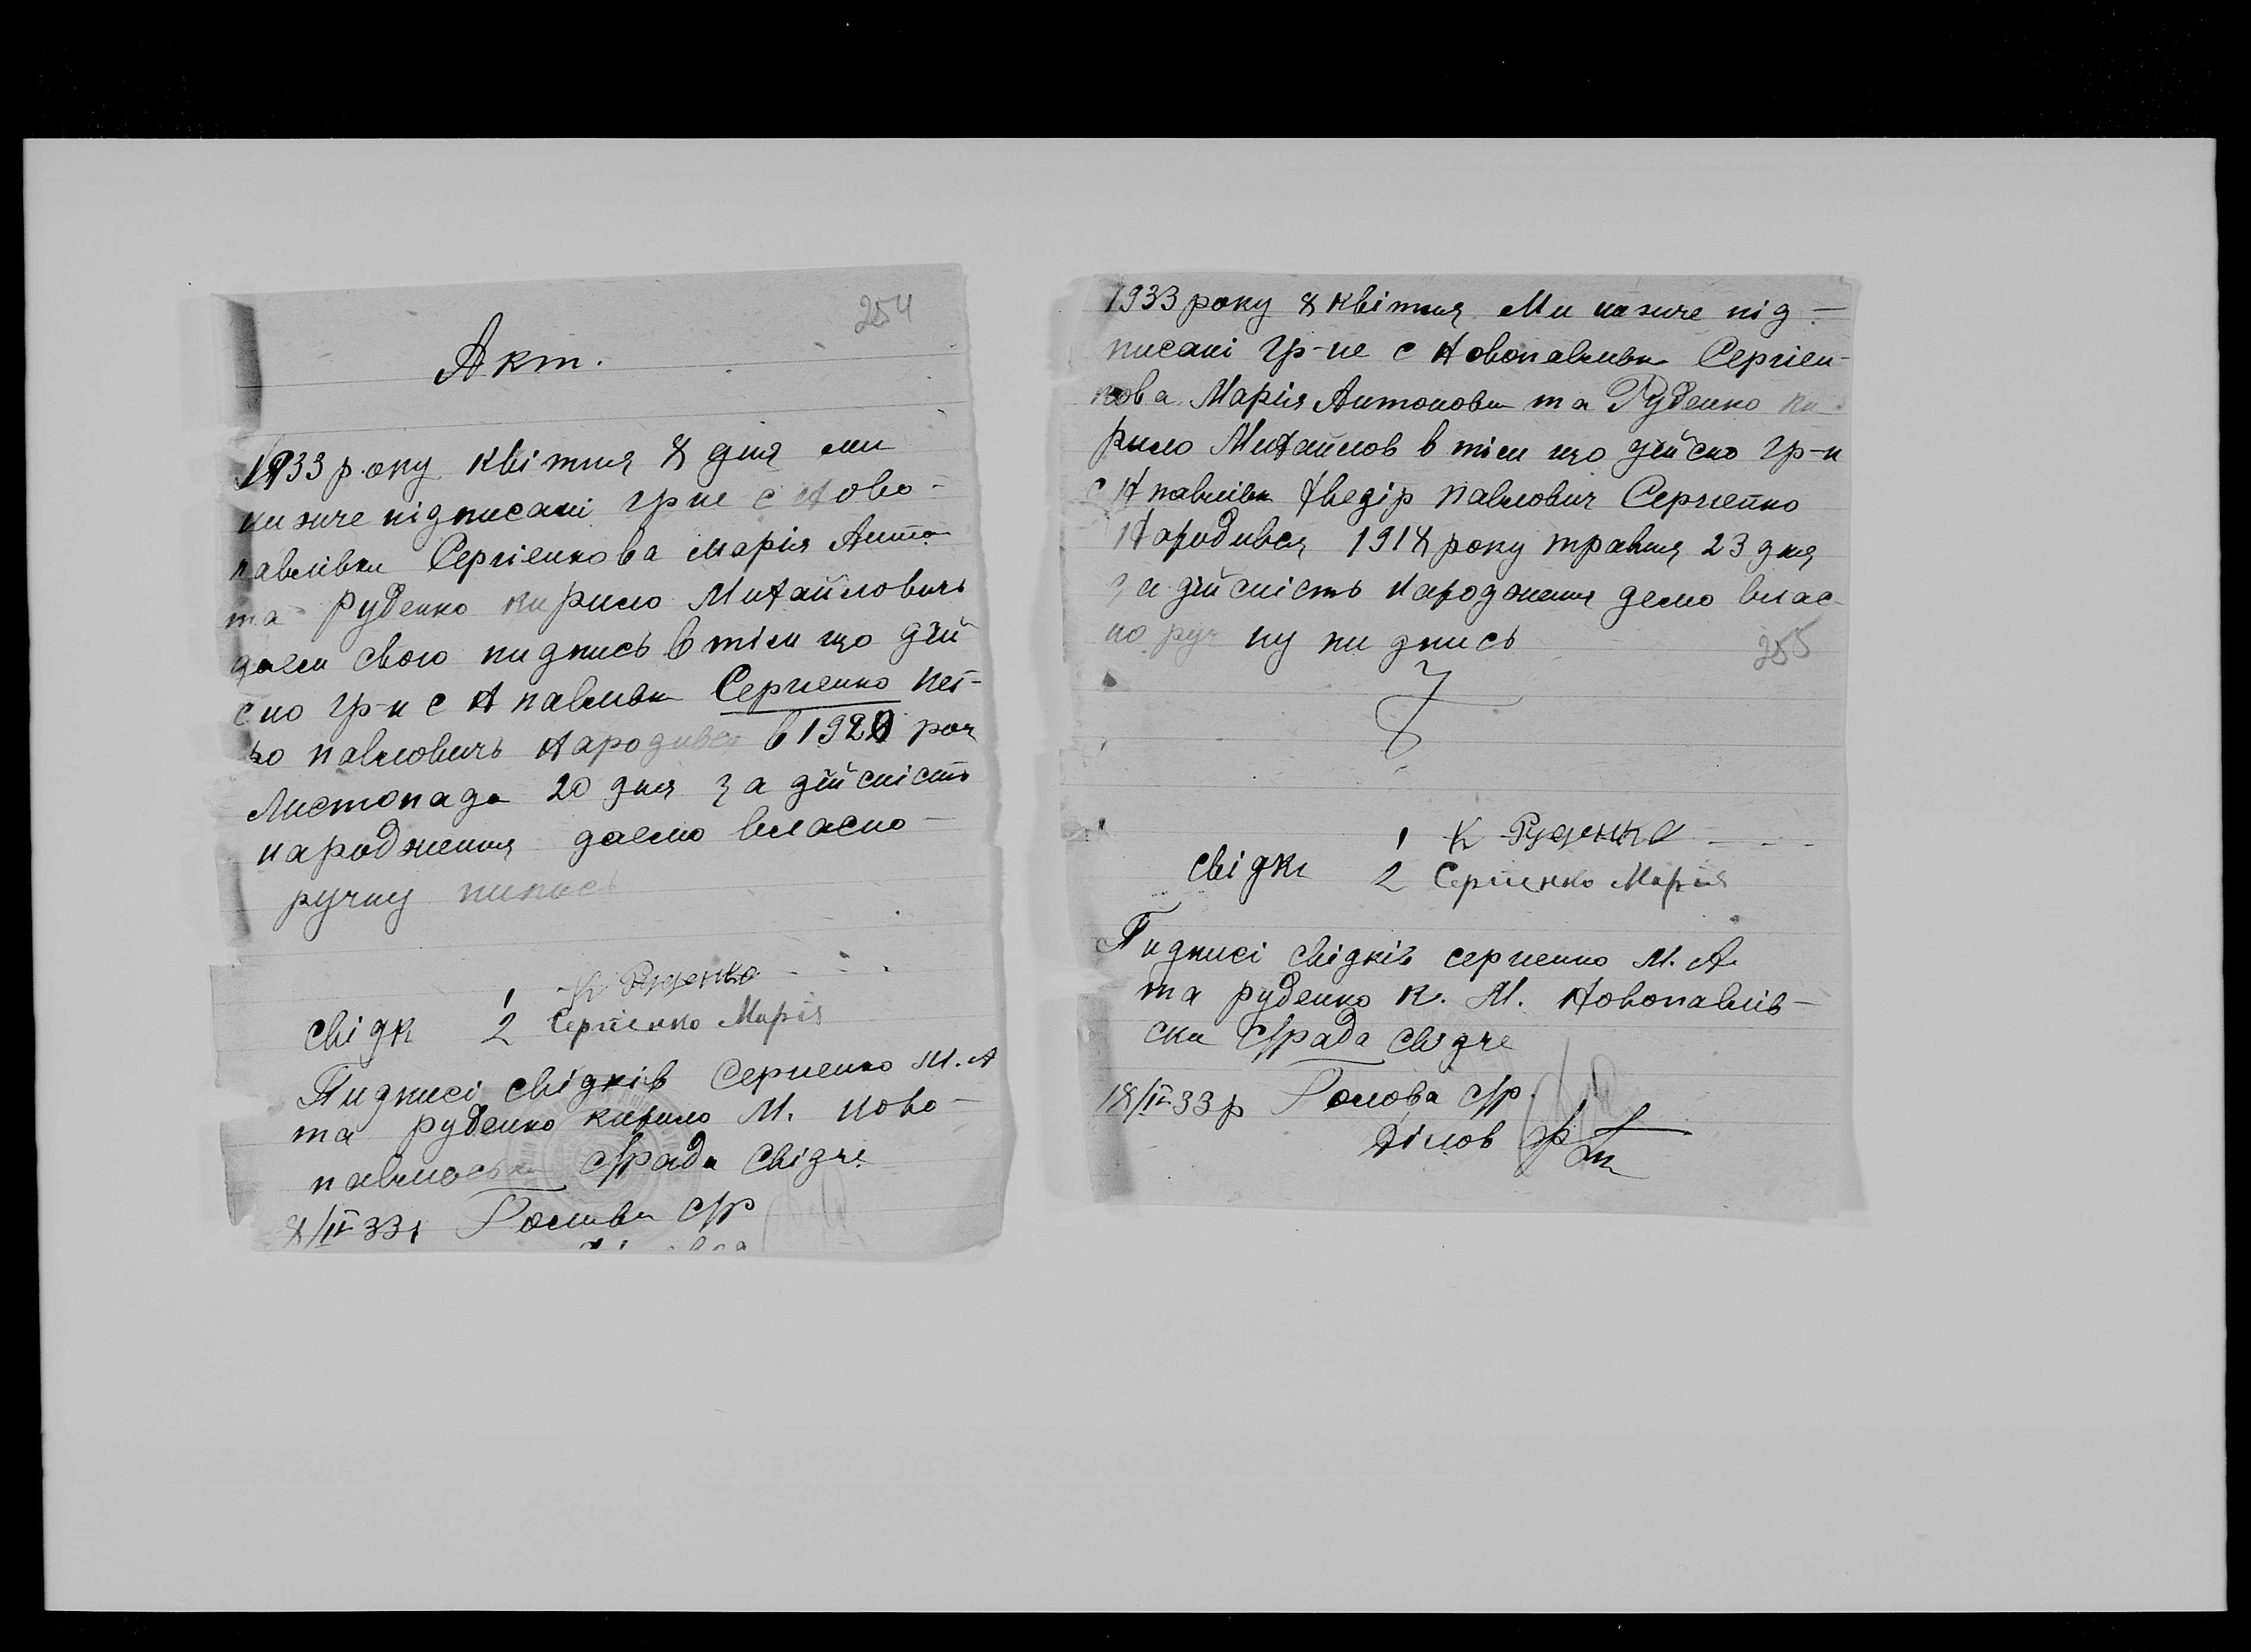 254
Акт.
1933 року квітня 8 дня ми
низче підписані гр не с Ново-
павлівки Сергієнкова Марія Анто
та Руденко Кирило Михайловичь
даєм свою пидпись в тім що дій
сно гр-н с Н павливки Сергиенко Пет-
ро Павловичь Народився в 1920 році
Листопада 20 дня за дійсність
народження даємо власно-
ручну
1 К Руденко
свідк 2 Сергієнко Марія
Пидписі свідків Сергиенко М. А
та руденко кирило М. Ново-
с/рада свідче
8/IV 33 Голова с/р
1933 року 8 квітня Ми низче під-
писані гр-не с Новопавливки Сергіен-
кова Марія Антоновн та Руденко Ки
рило Михайлов в тім що дійсно гр-н
с Н павлівки Хведір Павлович Сергієнко
Народився 1918 року травня 23 дня
за дійсність народження демо влас-
но руч ну пи дпись
255
1 К Руденко
свідки 2 Сергієнко Марія
Пидписі свідків сергиенко М. А.
та руденко К. М. Новопавлів-
ска с/рада свідче
18/IV-33 р Голова с/р.
Ділов